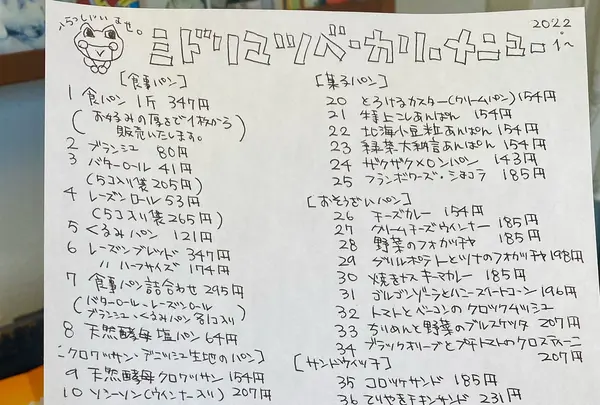 いらっしゃいませ。
ミドリマツベーカリーメニュー。
2022
1〜
[食事パン]
1 食パン 1斤 347円
(お好みの厚さで1枚から
販売いたします。)
2 ブランジュ 80円
3 バターロール 41円
(5コ入り袋 205円)
4 レーズンロール 53円
(5コ入り袋 265円)
5 くるみパン 121円
6 レーズンブレッド 347円
〃 ハーフサイズ 174円
7 食事パン詰合わせ 295円
(バターロール・レーズンロール
ブランジュ・くるみパン各1コ入り)
8 天然酵母 塩パン 64円
[クロワッサン・デニッシュ生地のパン]
9 天然酵母クロワッサン 154円
10 ソンソン(ウインナー入り) 207円
[菓子パン]
20 とろけるカスター(クリームパン) 154円
21 特上こしあんぱん 154円
22 北海小豆粒あんぱん 154円
23 緑菜大納言あんぱん 154円
24 ザクザクメロンパン 143円
25 フランボワーズ・ショコラ 185円
[おそうざいパン]
26 チーズカレー 154円
27 クリームチーズウインナー 185円
28 野菜のフォカッチャ 185円
29 グリルポテトとツナのフォカッチャ 198円
30 焼きナスキーマカレー 185円
31 ゴルゴンゾーラとハニースイートコーン 196円
32 トマトとベーコンのクロックムッシュ
33 ちりめんと野菜のブルスケッタ 207円
34 ブラックオリーブとプチトマトのクロスティーニ
207円
[サンドウィッチ]
35 コロッケサンド 185円
36 てりやきチキンサンド 231円